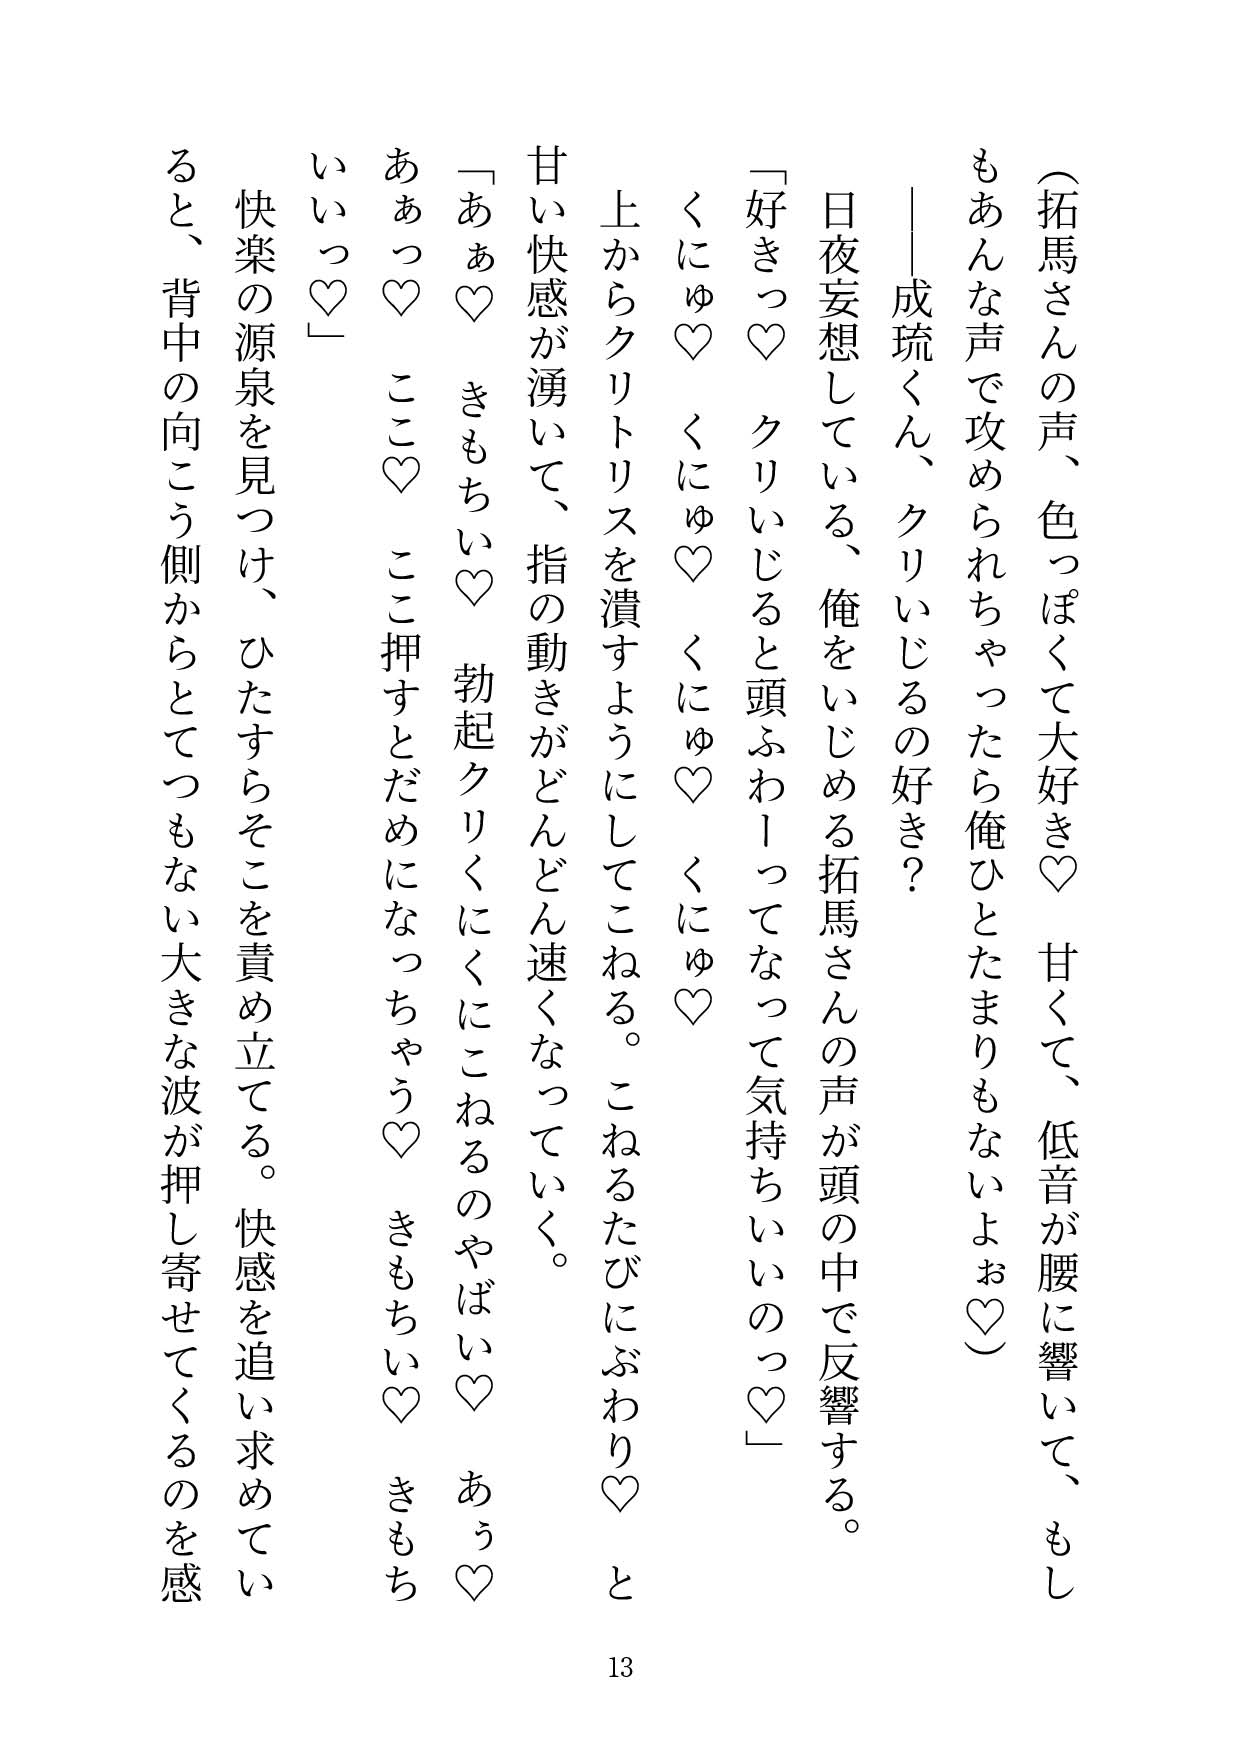 （拓馬さんの声、色っぽくて大好き♡　甘くて、低音が腰に響いて、もし
もあんな声で攻められちゃったら俺ひとたまりもないよぉ♡）
――成琉くん、クリいじるの好き？
日夜妄想している、俺をいじめる拓馬さんの声が頭の中で反響する。
「好きっ♡　クリいじると頭ふわーってなって気持ちいいのっ♡」
くにゅ♡　くにゅ♡　くにゅ♡　くにゅ♡
上からクリトリスを潰すようにしてこねる。こねるたびにぶわり♡　と
甘い快感が湧いて、指の動きがどんどん速くなっていく。
「あぁ♡　きもちい♡　勃起クリくにくにこねるのやばい♡　あぅ♡
あぁっ♡　ここ♡　ここ押すとだめになっちゃう♡　きもちい♡　きもち
いいっ♡」
快楽の源泉を見つけ、ひたすらそこを責め立てる。快感を追い求めてい
ると、背中の向こう側からとてつもない大きな波が押し寄せてくるのを感
13